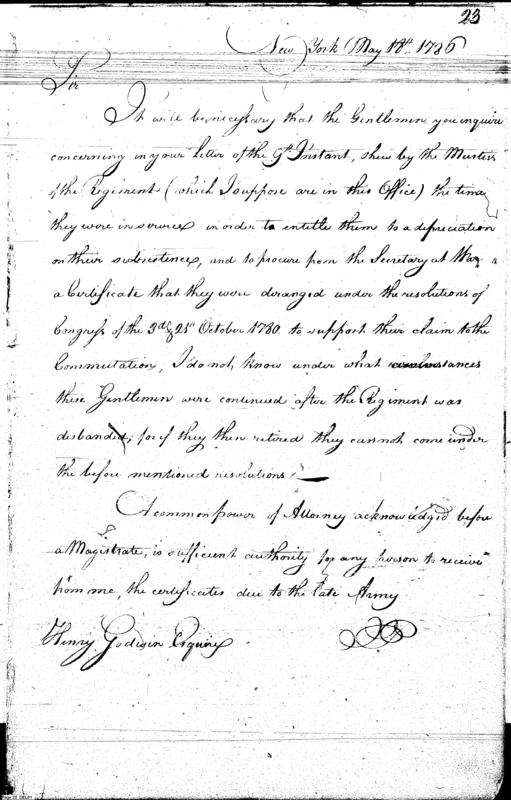 23
New York May 18th 1786
Sir
It will be necessary that the Gentlemen you inquire
concerning in your Letter of the 9th Instant, shew by the Musters
of the Regiment (which I suppose are in this Office) the time
they were in service in order to entitle them to a depreciation
on their subsistence, and to procure from the Secretary at War
a Certificate that they were deranged under the resolutions of
Congress of the 3d & 21st October 1780 to support their claim to the
Commutation, I do not, know under what circumstances
these Gentlemen were continued after the Regiment was
disbanded; for if they then retired they cannot come under
the before mentioned resolutions.
A common power of Attorney acknowledg'd before
a Magistrate, is sufficient authority for any person to receive
from me, the certificates due to the late Army
Henry Godwin Esquire